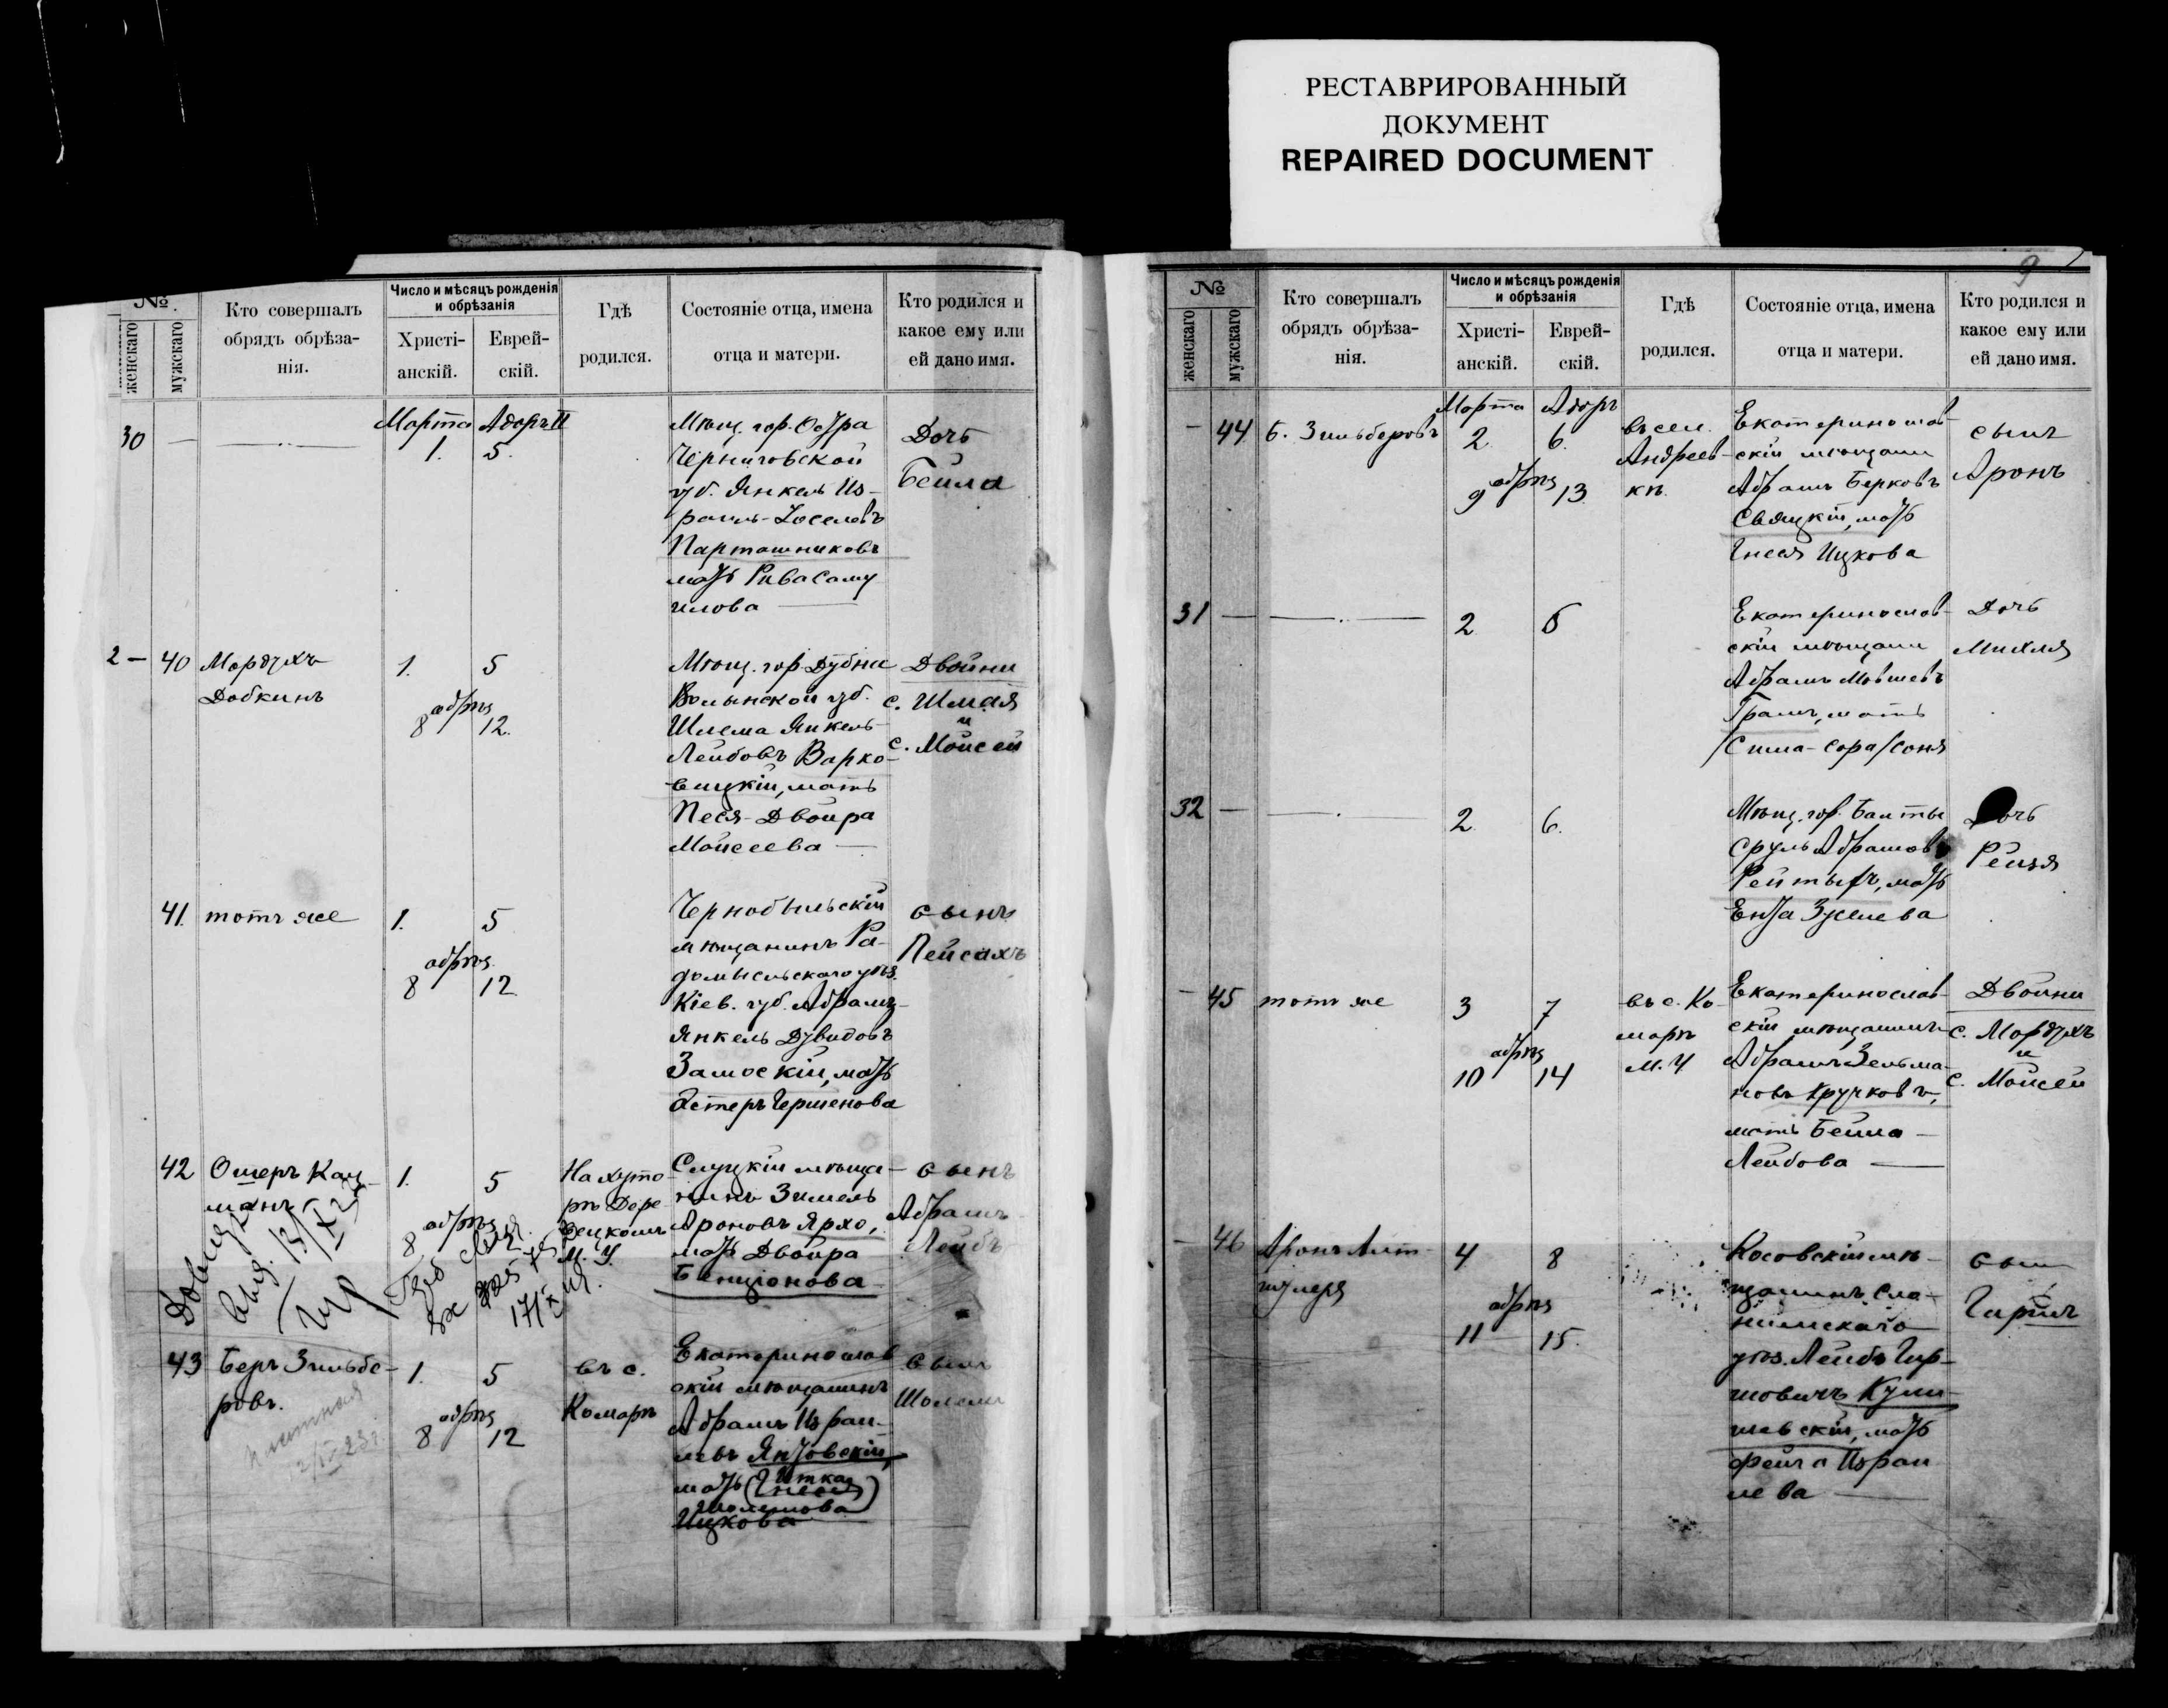 РЕСТАВРИРОВАННЫЙ
ДОКУМЕНТ
REPAIRED DOCUMENT
№
женскаго
мужскаго
Кто совершалъ
обрядъ обрѣза-
нія.
Число и мѣсяцъ рожденія
и обрѣзанія
Христі-
анскій.
Еврей-
скій.
Гдѣ
родился.
Состояніе отца, имена
отца и матери.
Кто родился и
какое ему или
ей дано имя.
Марта Адоръ II
30 — 1. 5.
Мѣщ. гор.
Черниговской
губ. Янкель Из-
раиль-Іоселевъ
Парташниковъ
мать Рива Саму
илова
Дочь
Бейла
2 — 40 Мордухъ
Добкинъ
1. 5
обрѣз
8 12.
Мѣщ. гор. Дубны
Волынской губ.
Шлема Янкель-
Лейбовъ Варко-
вицкій, мать
Песя-Двойра
Мойсеева —
Двойни
с. Шмая
и
с. Мойсей
41. тотъ же
1. 5
обрѣз.
8 12
Чернобыльскій
мѣщанинъ Ра-
домысльскаго уѣз.
Кіев. губ. Абрамъ-
Янкель Дувидовъ
Замоскій, мать
Эстеръ Гершенова
сынъ
Пейсахъ
42 Ошеръ Кац-
манъ
1. 5
обрѣз
8
На хуто-
рѣ
М. У.
Слуцкій мѣща-
нинъ Зимель
Ароновъ Ярхо,
мать Двойра
Бенціонова
сынъ
Абрамъ
Лейбъ
43 Беръ Зильбе-
ровъ.
1. 5
обрѣз
8 12
въ с.
Комарѣ
Екатеринослав
скій мѣщанинъ
Абрамъ Израи-
левъ Янковскій,
мать (Гнеся)
Итка
Шолемова
Ицкова
Сынъ
№
женскаго
мужскаго
Кто совершалъ
обрядъ обрѣза-
нія.
Число и мѣсяцъ рожденія
и обрѣзанія
Христі-
анскій.
Еврей-
скій.
Гдѣ
родился.
Состояніе отца, имена
отца и матери.
Кто родился и
какое ему или
ей дано имя.
9
Марта Адоръ
— 44 Б. Зильберовъ
2. 6.
обрѣз
9 13
въ сел.
Андреев-
кѣ.
Екатеринослав-
скій мѣщани
Абрамъ Берковъ
Свяцкій, мать
Гнеся Ицкова
сынъ
Аронъ
31 — 2. 6
Екатеринослав-
скій мѣщани
Абрамъ Мовшевъ
Грамъ, мать
Сима-Сора/Соня
Дочь
Михля
32 — 2. 6.
Мѣщ. гор. Балты
Сруль Абрамовъ
мать
Ента Зуселева
Дочь
Рейзя
— 45 тотъ же
3 7
обрѣз
10 14
въ с. Ко-
марѣ
М. У
Екатеринослав-
скій мѣщанинъ
Абрамъ Зельма-
новъ Кручковъ,
мать Бейла —
Лейбова —
Двойни
с. Мордухъ
и
с. Мойсей
— 46 Аронъ Альт-
шулеръ
4 8
обрѣз
11 15.
Косовскій мѣ-
щанинъ Сло-
нимскаго
уѣз. Лейбъ Гир-
шовичъ
мать
Фейга Израи
лева —
сынъ